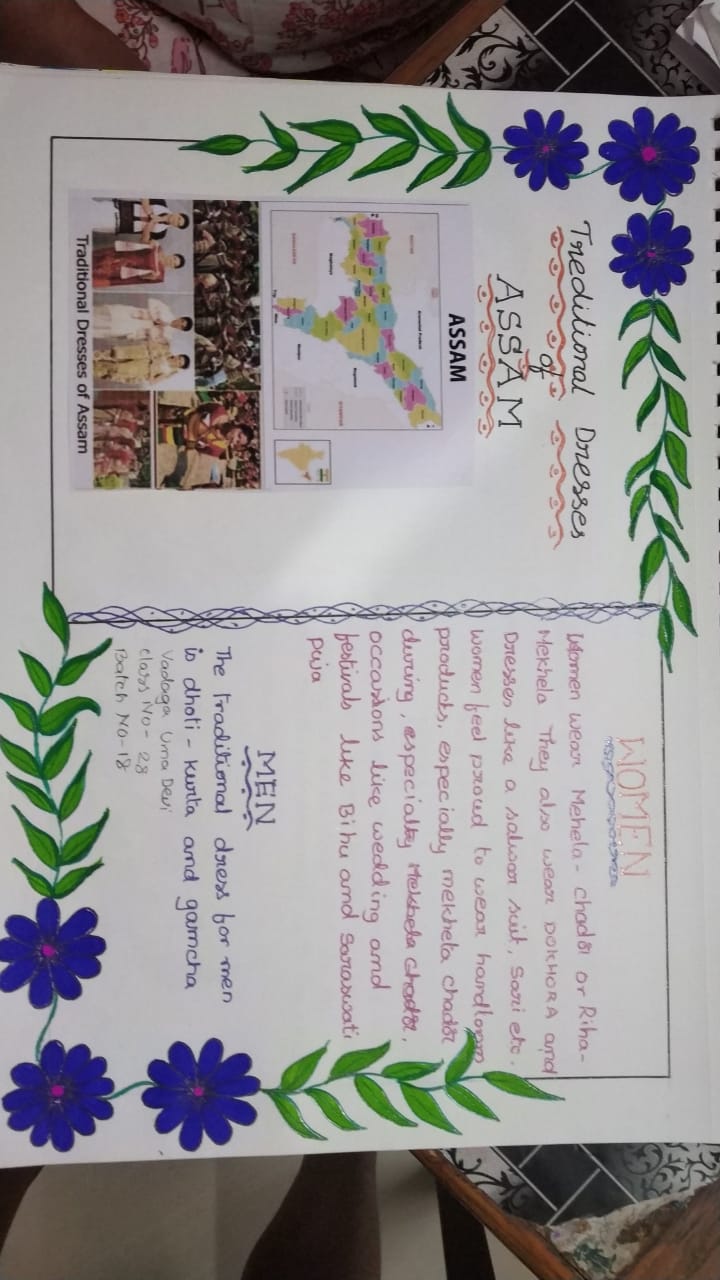 Treditional Dresses
of
ASSAM
ASSAM
Traditional Dresses of Assam
WOMEN
Women wear Mehela - chadār or Riha-
Mekhela They also wear DOKHORA and
Dresses like a salwar suit, Sari etc.
women feel proud to wear handloom
products, especially mekhela chadār
during, especially Mekhela Chadār,
occassions like wedding and
festivals like Bihu and Saraswati
Puja
MEN
The traditional dress for men
is dhoti - kurta and gamcha
Vadaga Uma Devi
class No - 28
Batch No-18